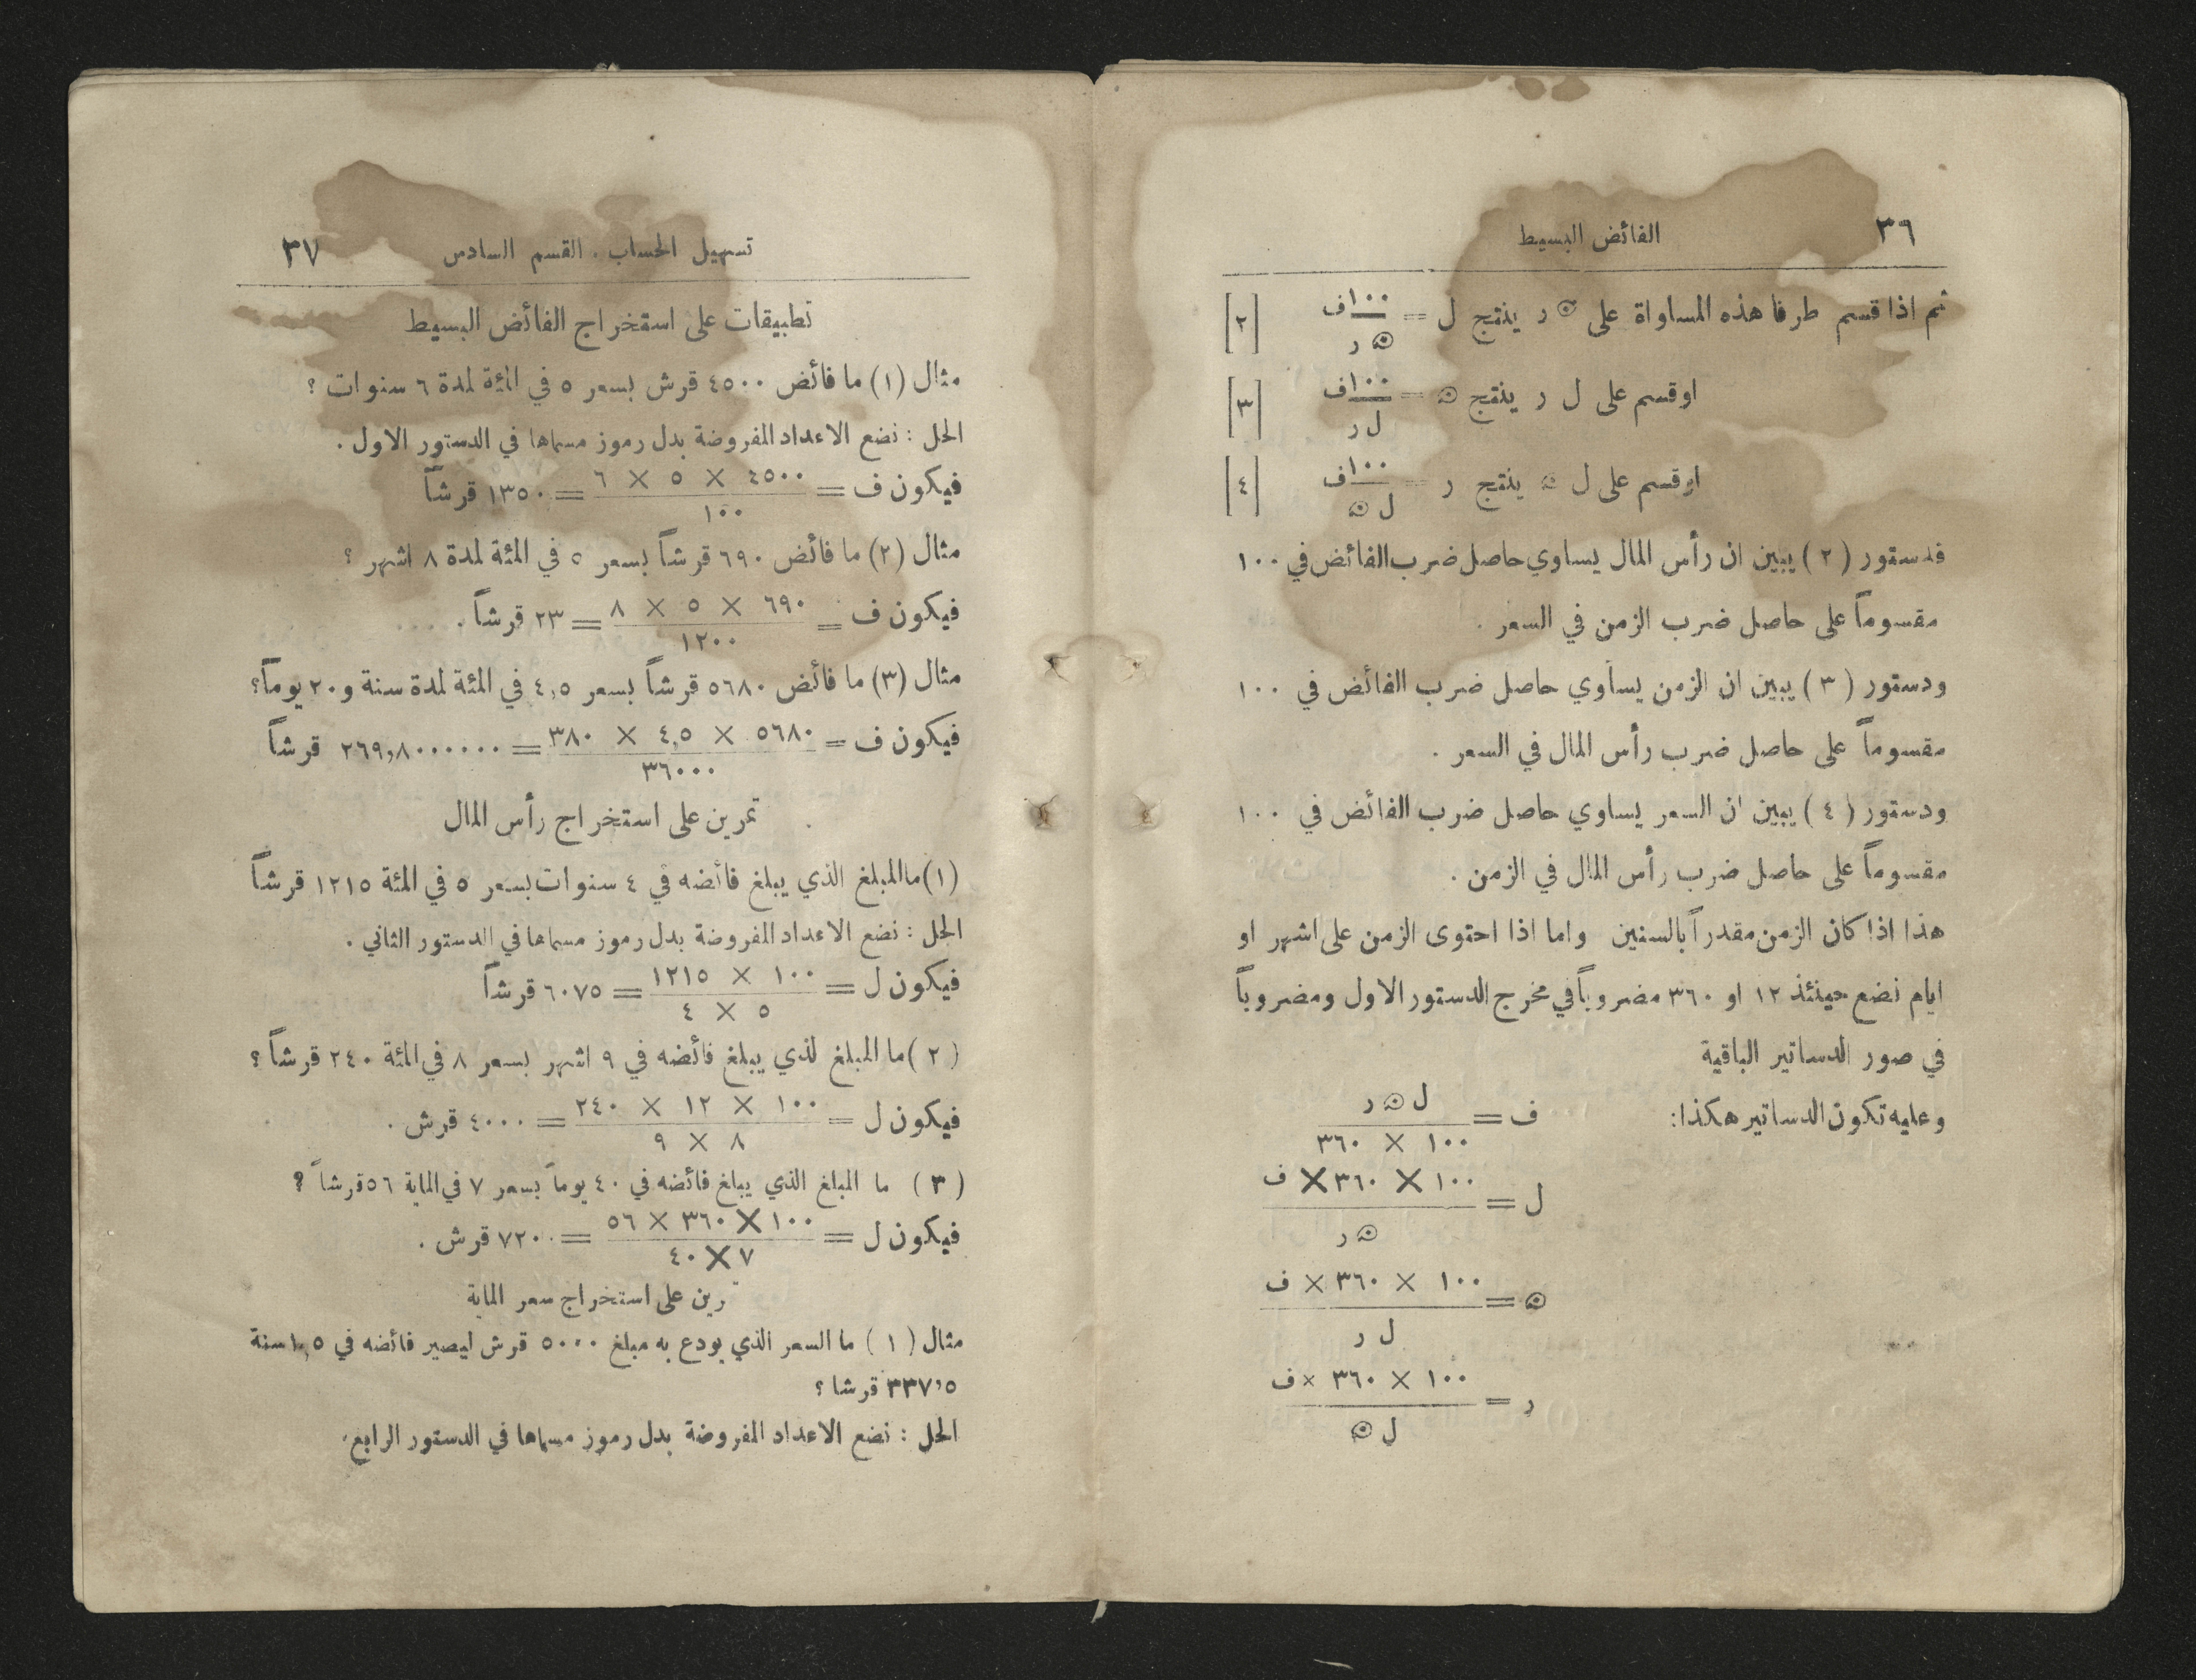 ٣٦
الفائض البسيط
ثم اذا قسم طرفا هذه المساواة على ﻫ ر ينتج ل = ١٠٠ف / ﻫ ر [٢]
او قسم على ل ر ينتج ﻫ = ١٠٠ف / ل ر [٣]
او قسم على ل ﻫ ينتج ر = ١٠٠ف / ل ﻫ [٤]
فدستور (٢) يبين ان رأس المال يساوي حاصل ضرب الفائض في ١٠٠
مقسوماً على حاصل ضرب الزمن في السعر .
ودستور (٣) يبين ان الزمن يساوي حاصل ضرب الفائض في ١٠٠
مقسوماً على حاصل ضرب رأس المال في السعر .
ودستور (٤) يبين ان السعر يساوي حاصل ضرب الفائض في ١٠٠
مقسوماً على حاصل ضرب رأس المال في الزمن .
هذا اذا كان الزمن مقدراً بالسنين واما اذا احتوى الزمن على اشهر او
ايام نضع حينئذ ١٢ او ٣٦٠ مضروباً في مخرج الدستور الاول ومضروباً
في صور الدساتير الباقية
وعليه تكون الدساتير هكذا: ف = ل ﻫ ر / ١٠٠ × ٣٦٠
ل = ١٠٠ × ٣٦٠ × ف / ﻫ ر
ﻫ = ١٠٠ × ٣٦٠ × ف / ل ر
ر = ١٠٠ × ٣٦٠ × ف / ل ﻫ
تسهيل الحساب . القسم السادس
٣٧
تطبيقات على استخراج الفائض البسيط
مثال (١) ما فائض ٤٥٠٠ قرش بسعر ٥ في المئة لمدة ٦ سنوات ؟
الحل : نضع الاعداد المفروضة بدل رموز مسماها في الدستور الاول .
فيكون ف = ٤٥٠٠ × ٥ × ٦ / ١٠٠ = ١٣٥٠ قرشاً
مثال (٢) ما فائض ٦٩٠ قرشاً بسعر ٥ في المئة لمدة ٨ اشهر ؟
فيكون ف = ٦٩٠ × ٥ × ٨ / ١٢٠٠ = ٢٣ قرشاً .
مثال (٣) ما فائض ٥٦٨٠ قرشاً بسعر ٤,٥ في المئة لمدة سنة و ٢٠ يوماً؟
فيكون ف = ٥٦٨٠ × ٤,٥ × ٣٨٠ / ٣٦٠٠٠ = ٢٦٩,٨٠٠٠٠٠٠ قرشاً
تمرين على استخراج رأس المال
(١) ما المبلغ الذي يبلغ فائضه في ٤ سنوات بسعر ٥ في المئة ١٢١٥ قرشاً
الحل : نضع الاعداد المفروضة بدل رموز مسماها في الدستور الثاني .
فيكون ل = ١٠٠ × ١٢١٥ / ٥ × ٤ = ٦٠٧٥ قرشاً
(٢) ما المبلغ لذي يبلغ فائضه في ٩ اشهر بسعر ٨ في المئة ٢٤٠ قرشاً ؟
فيكون ل = ١٠٠ × ١٢ × ٢٤٠ / ٨ × ٩ = ٤٠٠٠ قرش .
(٣) ما المبلغ الذي يبلغ فائضه في ٤٠ يوماً بسعر ٧ في الماية ٥٦ قرشاً ؟
فيكون ل = ١٠٠ × ٣٦٠ × ٥٦ / ٧ × ٤٠ = ٧٢٠٠ قرش .
رين على استخراج سعر الماية
مثال (١) ما السعر الذي يودع به مبلغ ٥٠٠٠ قرش ليصير فائضه في ١,٥ سنة
٣٣٧,٥ قرشا ؟
الحل : نضع الاعداد المفروضة بدل رموز مسماها في الدستور الرابع.